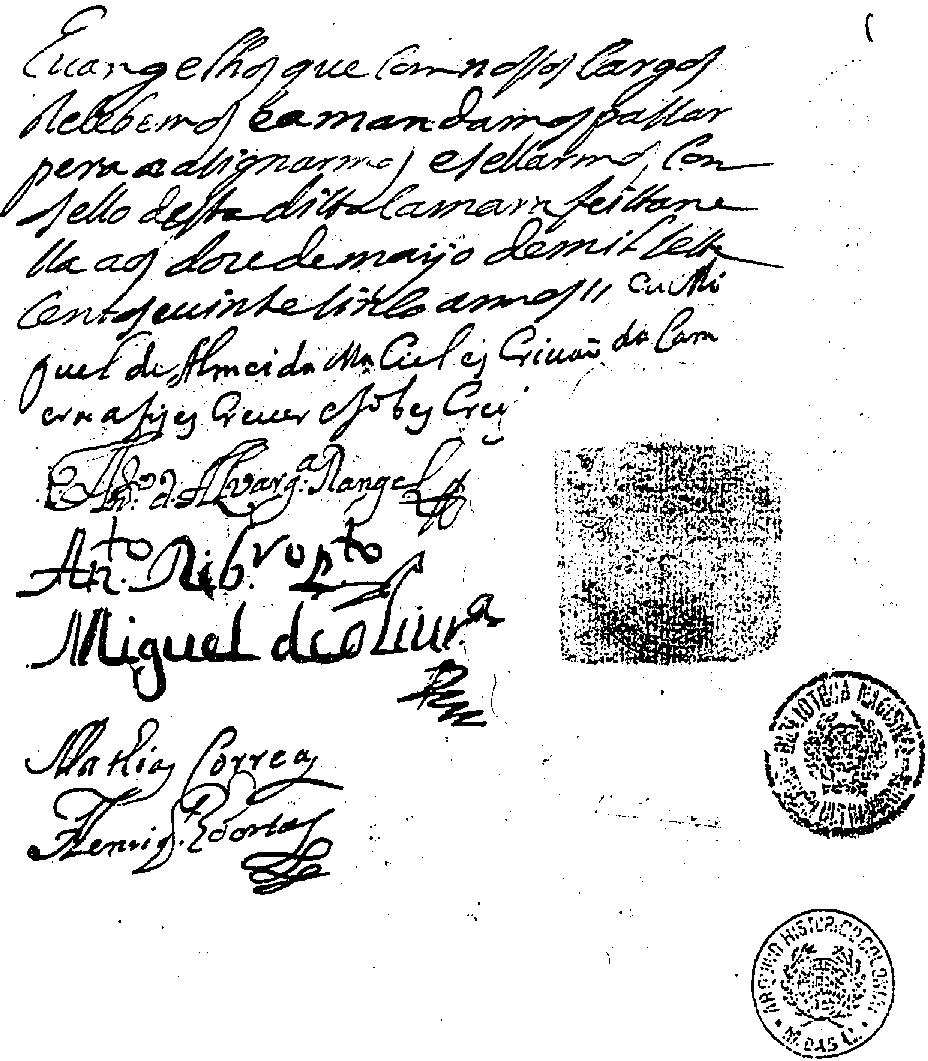 Euangelhos que com nossos Cargos
Recebemos e a mandamos passar
pera a asignarmos e sellarmos Com
sello desta ditta Camara feitta ne
lla aos doze de mayo de mil sette
Centos e uinte sinco annos // eu Mi
guel de Almeida Maciel esCriuaõ da Cam
era a fis esCreuer e sobesCreuj
de Alvarg.ª Rangel
An.to Rib.ro p.to
Miguel de oliur.ª
Mathias Correa
Henriq.
BIBLIOTECA NACIONAL
ARQUIVO HISTORICO COLONIAL
M. DAS C.